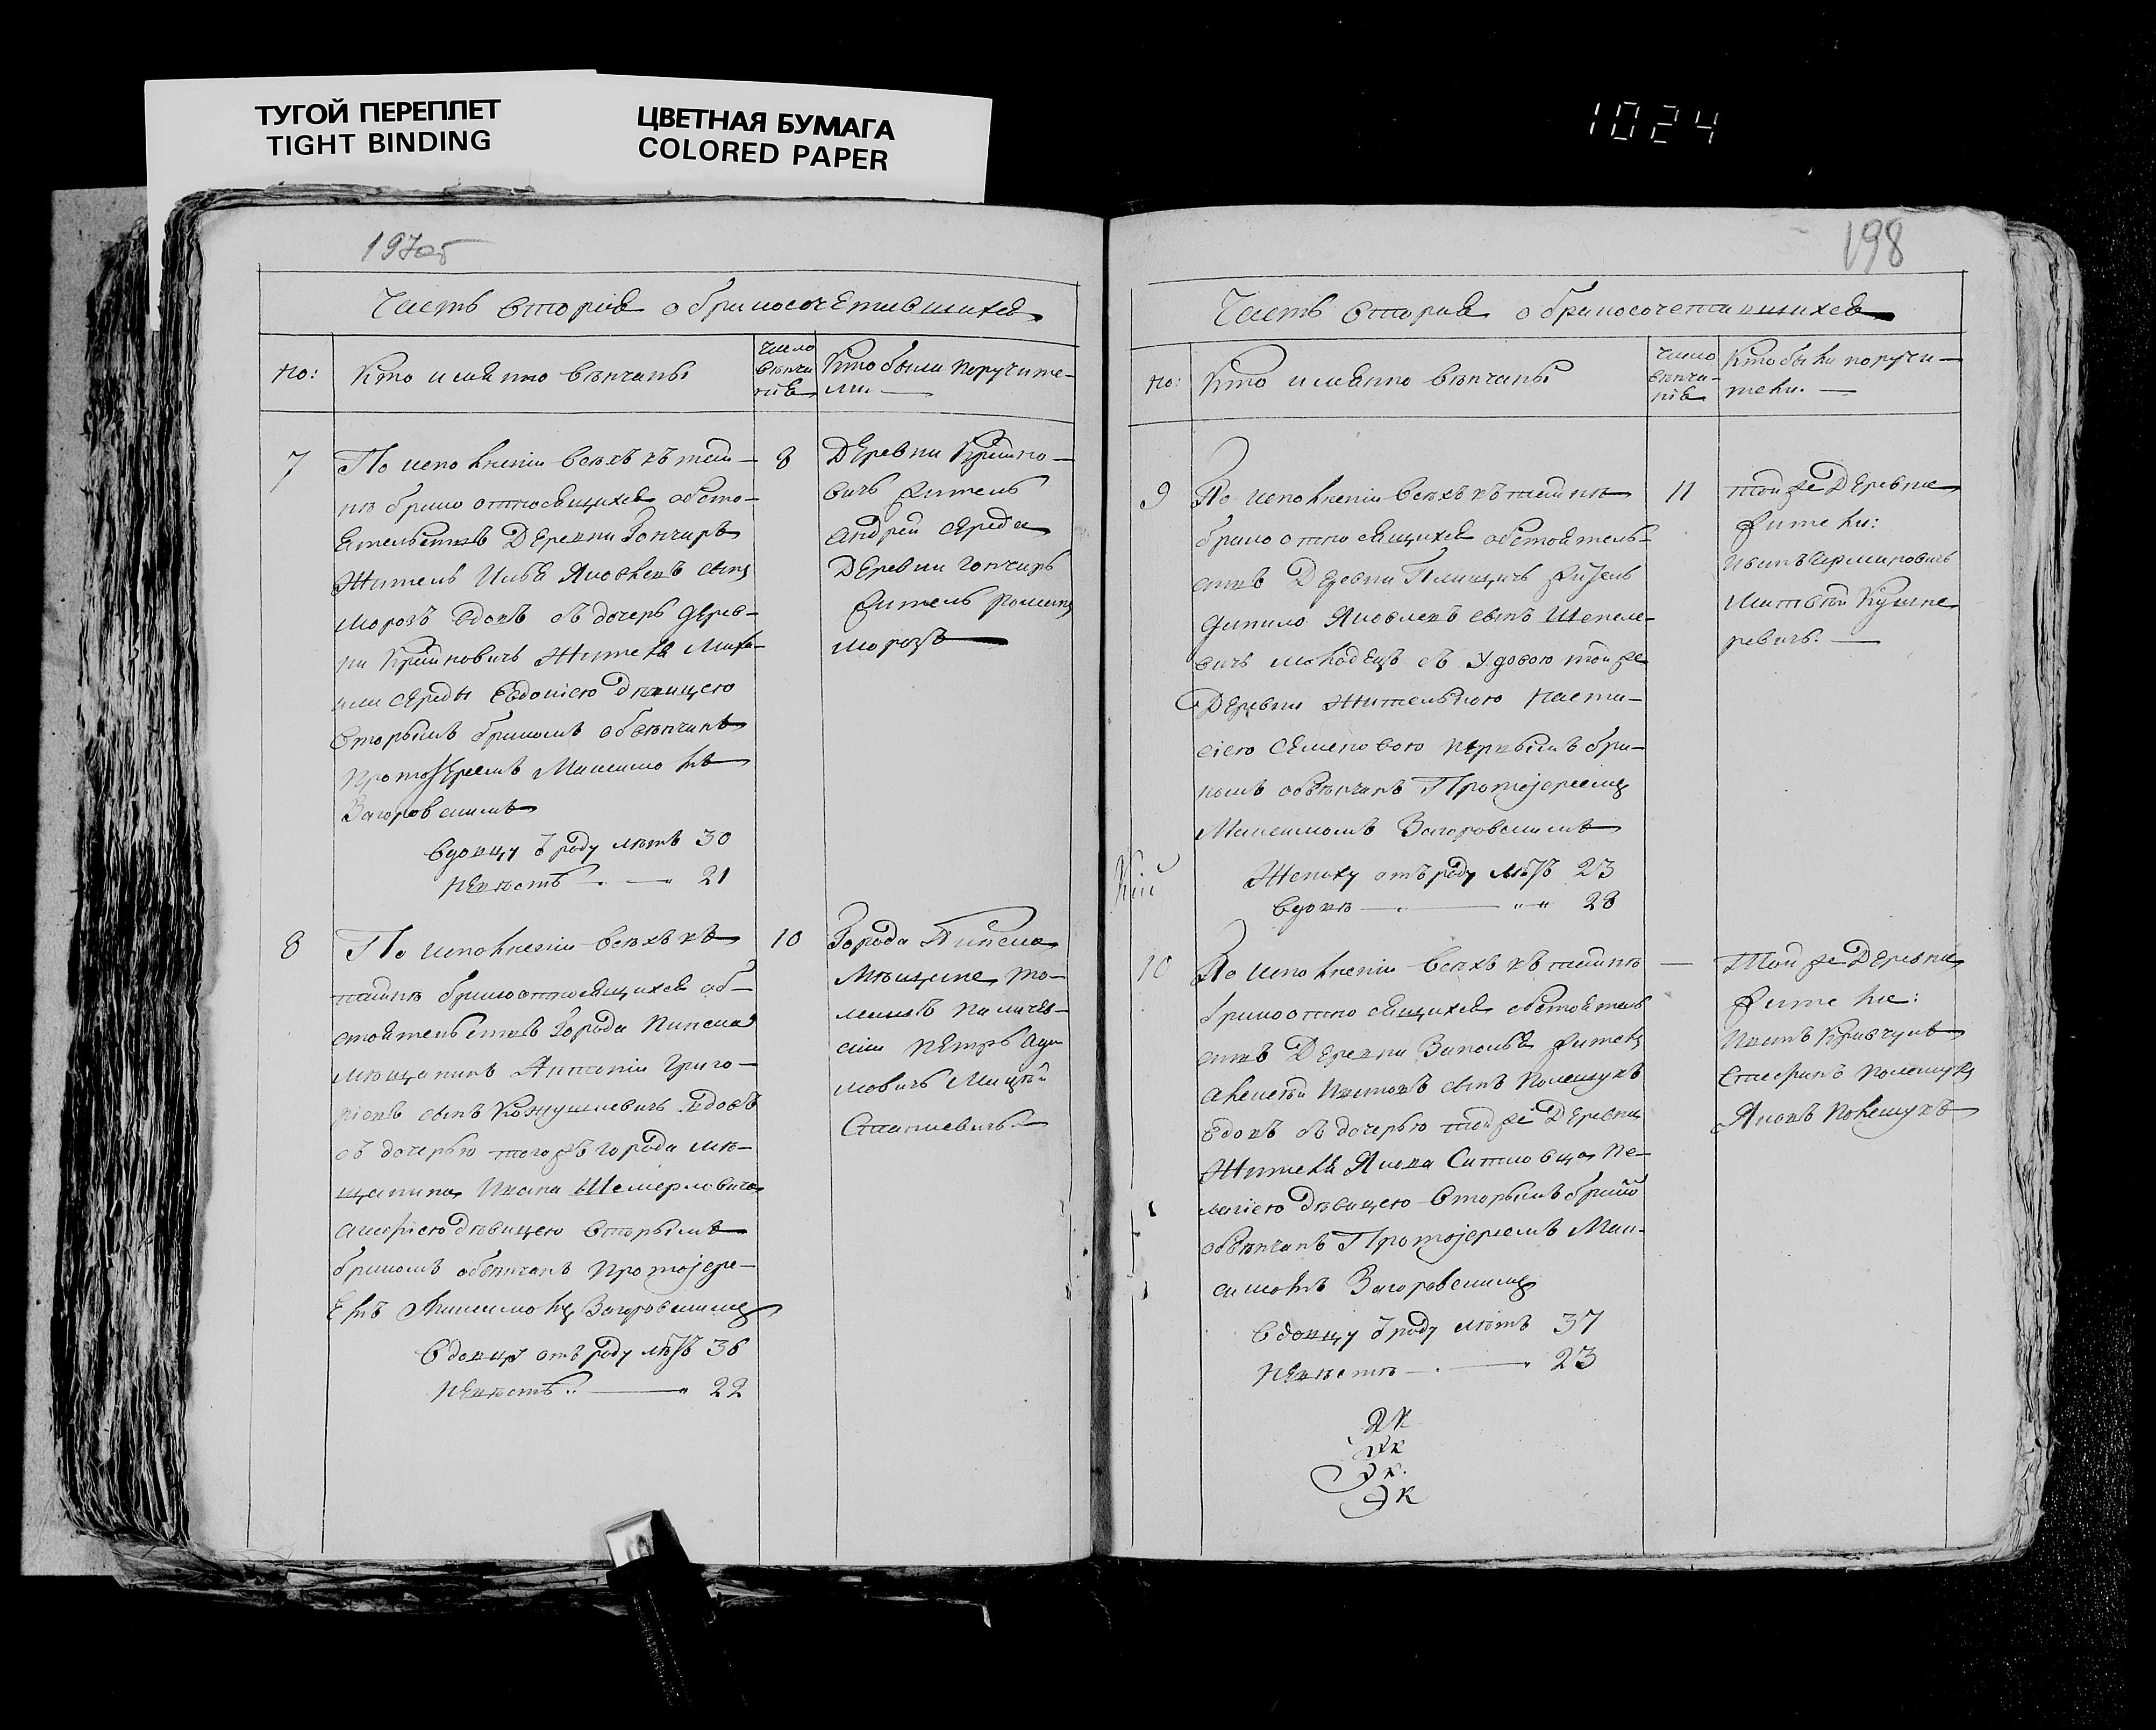 ТУГОЙ ПЕРЕПЛЕТ
TIGHT BINDING
ЦВЕТНАЯ БУМАГА
COLORED PAPER
1024
197об
Часть вторая о бракосочетавшихся
No:
Кто именно венчаны
число
венча
нія
Кто были поручите-
ли —
7
По исполненіи всехъ къ тай-
не брака относящихся обсто-
ятельствъ Деревни Гончаръ
Житель Илья Яковлевъ сынъ
Морозъ вдовъ съ дочерь дерев-
ни Крайновичъ Жителя Миха-
ила Середы Евдокіею девицею
вторымъ бракомъ обвенчанъ
Протоіереемъ Максимомъ
Загоровскимъ
Вдовцу отъ роду летъ 30
невесте 21
8
Деревни Крайно-
вичъ житель
Андрей Середа
Деревни Гончаръ
житель Романъ
Морозъ
8
По исполненіи всехъ къ
тайне брака относящихся об-
стоятельствъ Города Пинска
мещанинъ Антоній Григо-
ріевъ сынъ вдовъ
съ дочерью тогожъ города ме-
щанина Ивана
девицею вторымъ
бракомъ обвенчанъ Протоіере-
емъ Максимомъ Загоровскимъ
Вдовцу отъ роду летъ 36
невесте 22
10
Города Пинска
Мещане
Петръ Ада
мовичъ
Станкевичъ
198
Часть вторая о бракосочетавшихся
No:
Кто именно венчаны
число
венча-
нія
Кто были поручи-
тели. —
9
По исполненіи всехъ къ тайне
брака относящихся обстоятель-
ствъ Деревни житель
Данило Яковлевъ сынъ Шепеле-
вичъ молодецъ съ удовою той же
Деревни Жителькою Наста-
сіею Семеновою первымъ бра-
комъ обвенчанъ Протоіереемъ
Максимомъ Загоровскимъ
Жениху отъ роду летъ 23
вдове 28
11
той же Деревне
жители:
Иванъ
Матвей Кушне
ревичъ. —
10
По исполненіи всехъ къ тайне
брака относящихся обстоятель
ствъ Деревни Заполья житель
Алексей Ивановъ сынъ Полещукъ
вдовъ съ дочерью той же Деревни
Жителя Якова Пе-
лагіею девицею вторымъ бракомъ
обвенчанъ Протоіереемъ Мак-
симомъ Загоровскимъ
Вдовцу отъ роду летъ 37
невесте 23
—
Той же Деревни
жители:
Иванъ Кравчукъ
Полещукъ
Яковъ Полещукъ